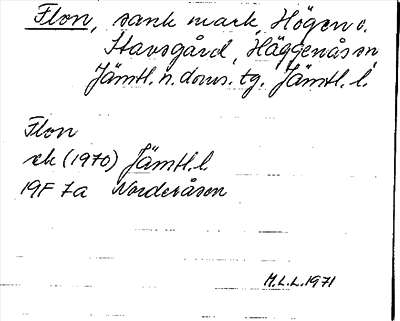 Flon, sank mark, Högen o.
Stavsgård, Häggenås sn
Jämtl. n. doms. tg. Jämtl. l.
Flon
ek (1970) Jämtl. l.
19F 7a Norderåsen
M.L.L. 1971